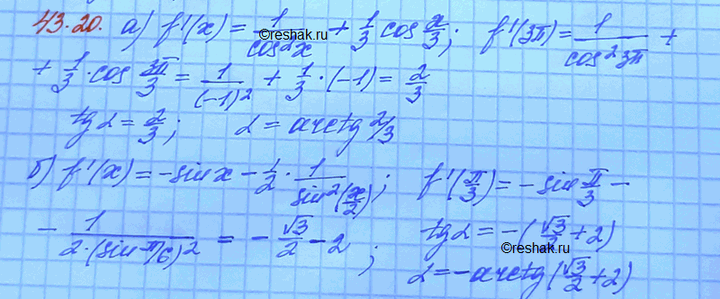 43.20. а) f'(x) = 1/cos²x + 1/3 cos x/3; f'(3π) = 1/cos² 3π +
+ 1/3 · cos 3π/3 = 1/(-1)² + 1/3 · (-1) = 2/3
tg α = 2/3; α = arctg 2/3
б) f'(x) = -sin x - 1/2 · 1/sin²(x/2); f'(π/3) = -sin π/3 -
- 1/2·(sin π/6)² = - √3/2 - 2; tg α = -(√3/2 + 2)
α = -arctg(√3/2 + 2)
©5terka.com
©5terka.com